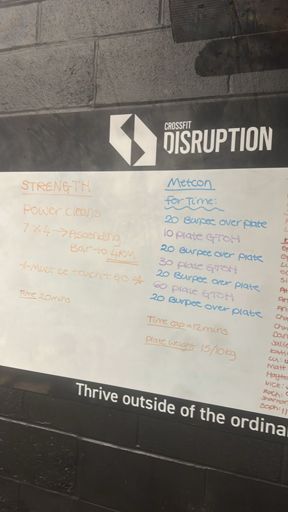 CROSSFIT
DISRUPTION
STRENGTH
Power cleans
7 x 4 → Ascending
Time 20mins
Metcon
For Time:
20 Burpee over plate
10 plate GTOH
20 Burpee over plate
30 plate GTOH
20 Burpee over plate
60 plate GTOH
20 Burpee over plate
Time cap = 12mins
Plate weight 15/10kg
Thrive outside of the ordina